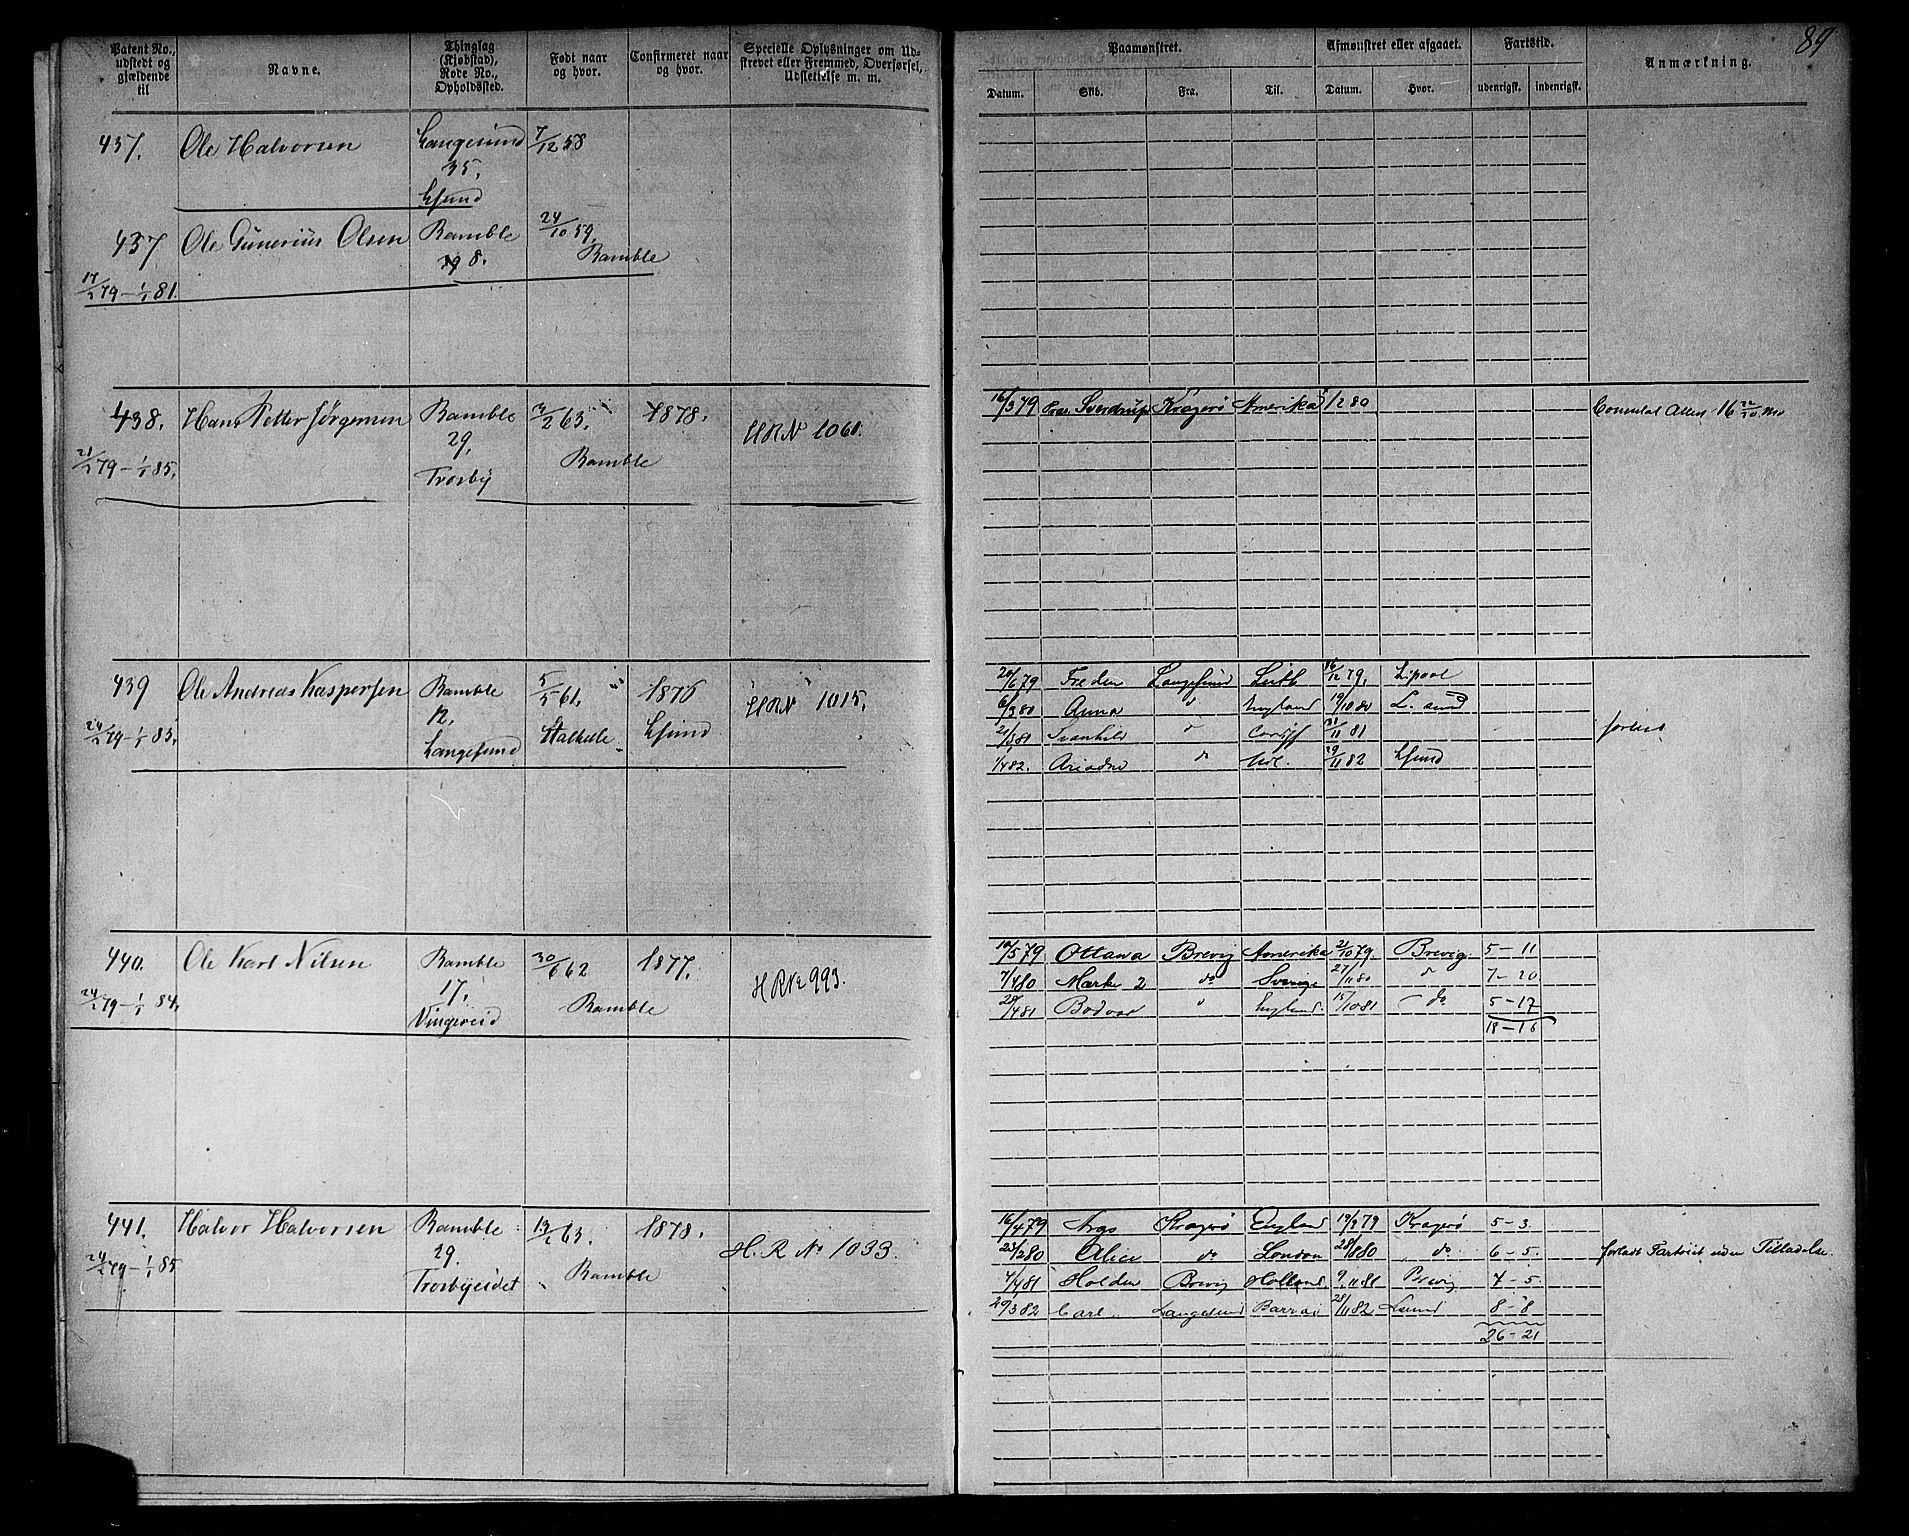 89
Patent No., udstedt og gjældende til
Navne.
Thinglag (Kjøbstad), Rode No., Opholdssted.
Født naar og hvor.
Confirmeret naar og hvor.
Specielle Oplysninger om Udskrevet eller Fremmed, Overførsel, Udslettelse m. m.
Paamønstret.
Afmønstret eller afgaaet.
Fartstid.
Anmærkning.
Datum. Skib. Fra. Til. Datum. Hvor. udenrigsk. indenrigsk.
437. Ole Halvorsen Langesund 7/12 58
35.
Lsund
437 Ole Gunerius Olsen Bamble 24/10 59.
8. Bamble
17/2 79 – 1/1 81.
438. Hans Petter Jørgensen Bamble 63. 1878. HRN 1061.
29. Bamble
21/2 79 – 1/1 85. Trosby
16/3 79 Sverdrup Kragerø Amerika 80 16 22/10
439 Ole Andreas Kaspersen Bamble 5/5 61. 1876 HRN 1015.
12. Stathelle Lsund
24/2 79 – 1/1 83. Langesund
20/6 79 Freden Langesund Leith 16/12 79. Lipool
6/3 80 Anna " England 19/10 80 L. sund
21/3 81 Svanhild " Cardiff 21/11 81 forlist
1/4 82. Ariadne do 29/11 82 Lsund
440. Ole Karl Nilsen Bamble 30/6 62 1877. HRNr 993.
17. Bamble
24/2 79 – 1/1 84.
10/5 79 Ottawa Brevig Amerika 21/10 79. Brevig. 5 – 11
7/4 80 Marke 2 do Sverige 27/11 80 " 7 – 20
28/4 81 Bodvar " England. 15/10 81 do 5 – 17
18 – 16
441. Halvor Halvorsen Bamble 13/2 63. 1878. H. R No 1033.
29. Bamble
24/2 79 – 1/1 85 Trosbyeidet
16/4 79 Argo Kragerø England 19/9 79 Kragerø 5 – 3.
23/2 80 Alice do London 28/8 80 do 6 – 5. forladt Fartøiet uden Tilladelse.
7/4 81 Holden Brevig Holland 9/11 81 Brevig 7 – 5.
29/3 82 Carl Langesund 28/11 82 Lsund 8 – 8
26 – 21